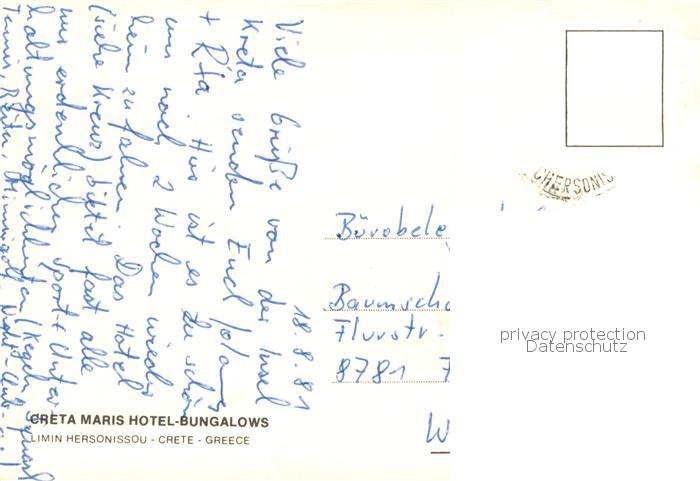 18.8.81
Viele Grüße von der Insel
Kreta senden Euch
+ Rita. Hier ist es zu schön
um nach 2 Wochen wieder
heim zu fahren. Das Hotel
(siehe Kreuz) bietet fast alle
nur erdenklichen Sport + Unter-
haltungsmöglichkeiten (Kegeln, Squash
Tennis, Reiten, Minigolf, Night-Club
CRETA MARIS HOTEL-BUNGALOWS
LIMIN HERSONISSOU - CRETE - GREECE
CHERSONIS
Bürobele
Baumsch
Flurstr.
8781
W
privacy protection
Datenschutz